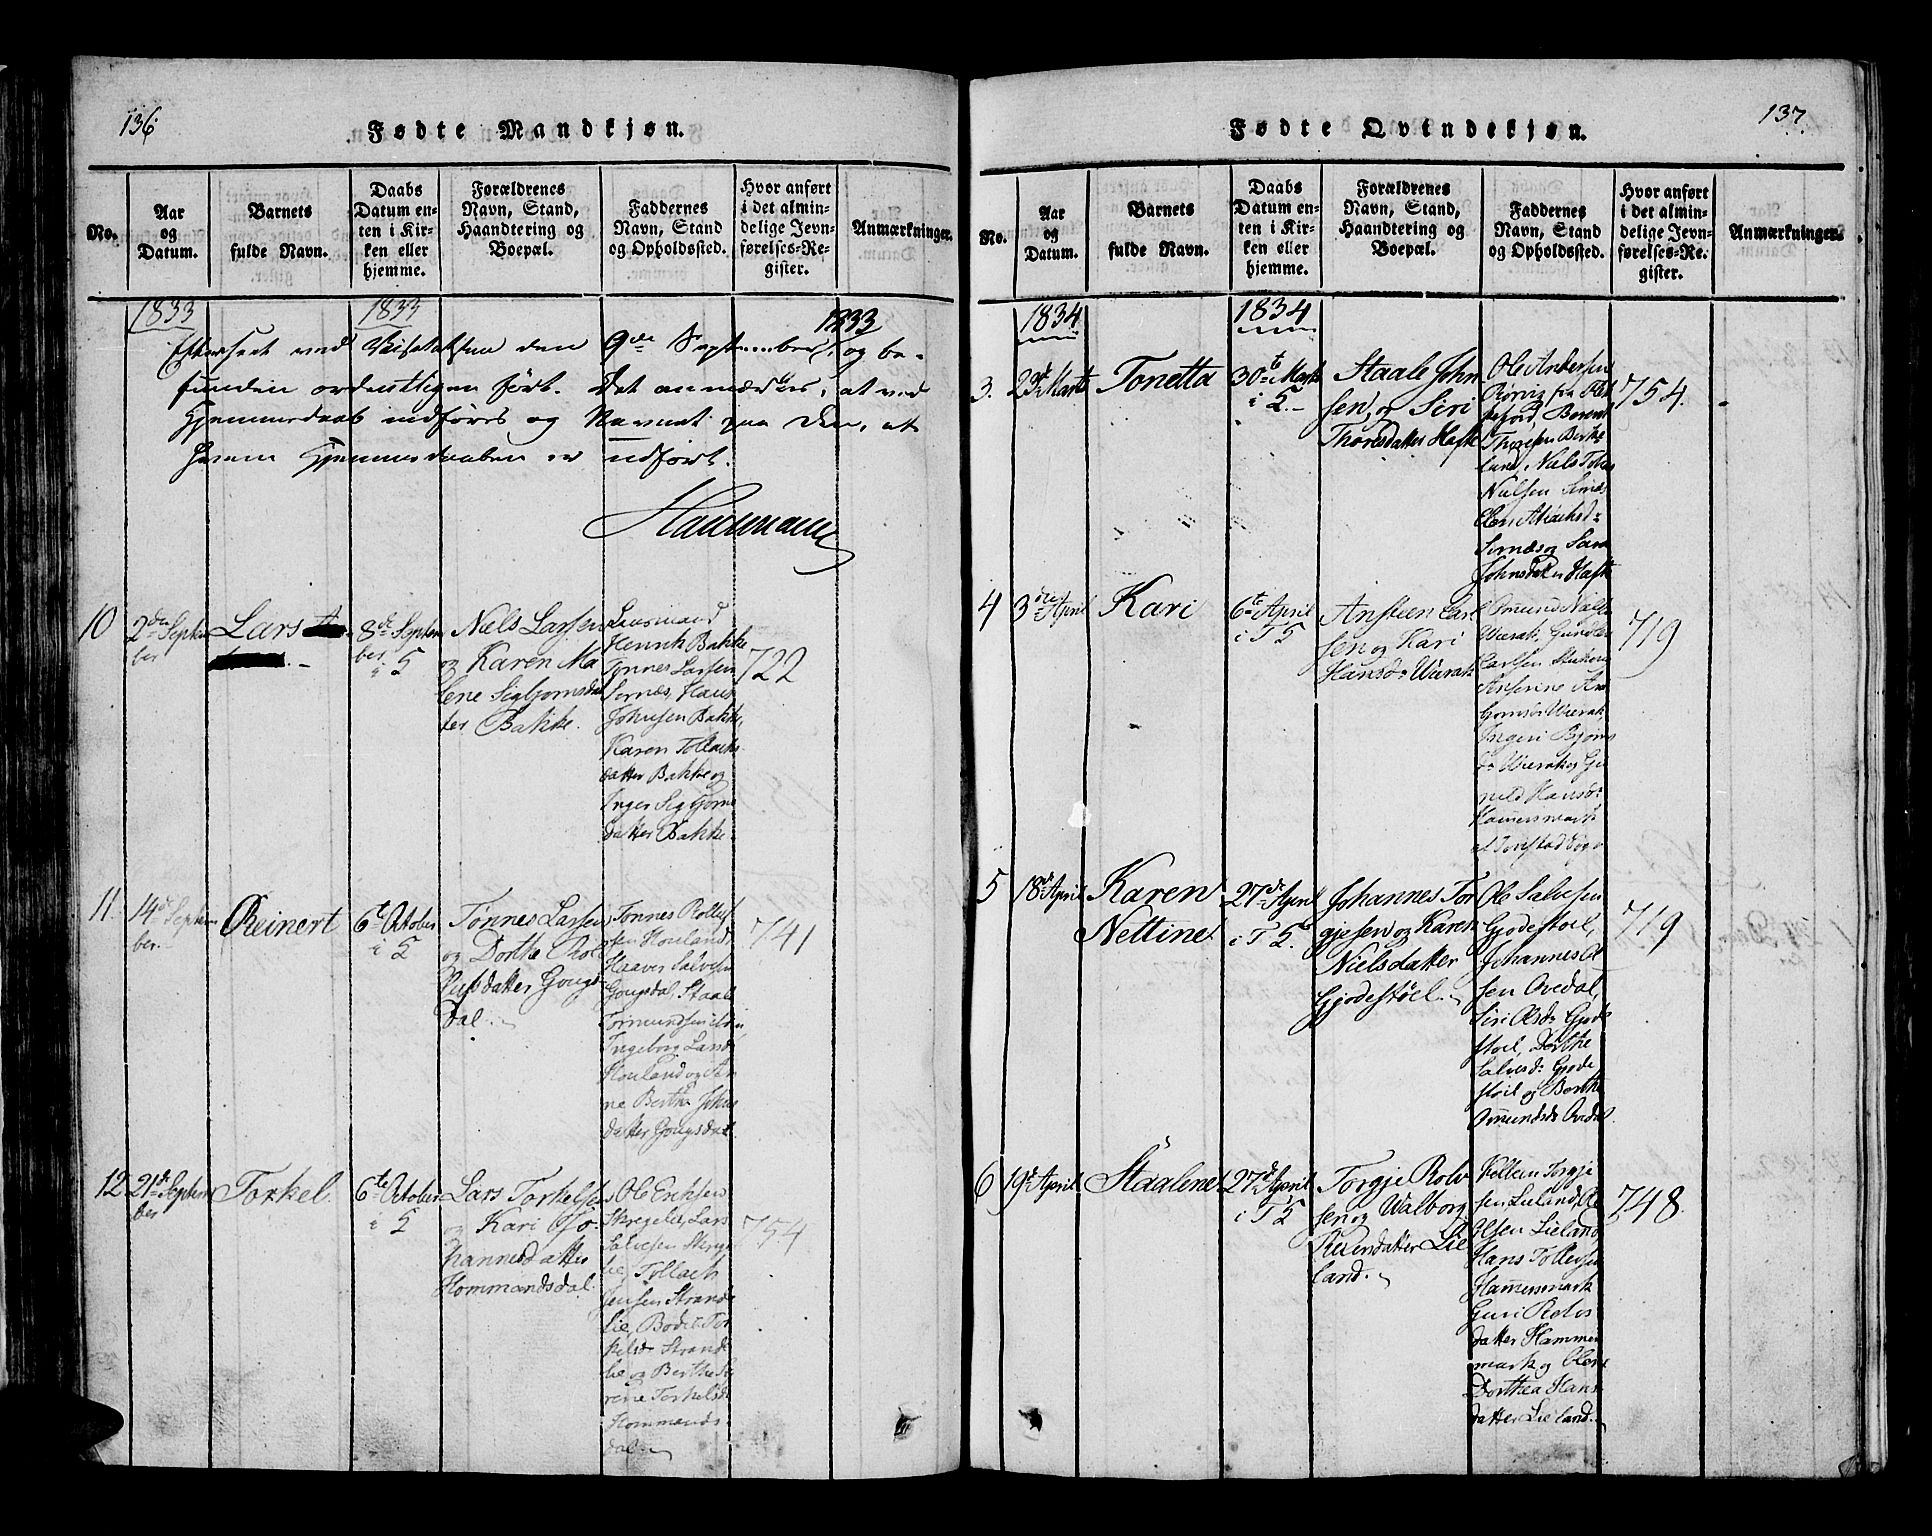 136
Fødte Mandkjøn.
No.
Aar
og
Datum.
Barnets
fulde Navn.
Daabs
Datum en-
ten i Kir-
ken eller
hjemme.
Forældrenes
Navn, Stand,
Haandtering og
Boepæl.
Faddernes
Navn, Stand
og Opholdssted.
Hvor anført
i det almin-
delige Jevn-
førelses-Re-
gister.
Anmærkninger.
1833
1833
1833
Efterseet ved Visitatsen den 9de September, og be-
funden ordentligen ført. Det anmærkes, at ved
Hjemmedaab indføres og Navnet paa den, af
hvem Hjemmedaaben er udført.
10
2den Septem
ber
Lars
8de Septem
ber
i S
Niels Larssen
og Karen Ma
lene Sigbjornsdat
ter Bakke.
Lensmand
Henrik Bakke
Tønnes Larssen
Sirnæs, Hans
Johnsen Bakke,
Karen Tollachs
datter Bakke og
Inger Sigbjorns
datter Bakke.
722
11.
14de Septem
ber.
Reinert
6te October
i S
Tønnes Larssen
og Dorthe Rol
lufsdatter Gougs
dal.
Tonnes Rolluf
sen Houland,
Haaver Salvesen
Gougsdal, Staale
Tormundsen
Ingeborg
Houland og An
ne Berthe Johns
datter Gougsdal.
741
12
21de Septem
ber
Torkel.
6te October
i S
Lars Torkelsen
og Kari Jo
hannesdatter
Hommandsdal.
Ole Eriksen
Skregelie, Lars
Salvesen Skrege
lie, Tollach
Jensen Strande
lie, Bodel Tor
kelsd. Strande
lie og Berthe Se
rene Torkelsd.
Hommands-
dal.
754
137.
Fødte Qvindekjøn.
No.
Aar
og
Datum.
Barnets
fulde Navn.
Daabs
Datum en-
ten i Kir-
ken eller
hjemme.
Forældrenes
Navn, Stand,
Haandtering og
Boepæl.
Faddernes
Navn, Stand
og Opholdssted.
Hvor anført
i det almin-
delige Jevn-
førelses-Re-
gister.
Anmærkninger.
1834
1834
3.
23de Marts
Tonetta
30te Marts
i S.
Staale John
sen, og Siri
Thoresdatter Hafte
Ole Andersen
Rørvig fra Flek
kefiord, Berent
Thoresen Birke
land, Niels Tobias
Nielsen Sirnæs
Elen
Sirnæs og Sara
Johnsdatter Hafte
754.
4
3die April
Kari
6te April
i T S
Ansteen Carl
sen og Kari
Hansd. Wirak
Omund Niels
Wirak, Gundler
Carlsen
Anserine An
Wirak,
Ingeri Bjørns
d. Wirak og Gu
nild Hansd.
Hamersmark
719
5
18de April
Karen
Nettine
27de April
i T S.
Johannes Tor
gjesen og Karen
Nielsdatter
Gjodestøel.
Ole Salvesen
Gjodestoel,
Johannes Ol
sen Ovedal,
Siri Olsd. Gjode
stoel, Dorthe
Salvesd. Gjode
stoel og Berthe
Omundsd. Ovedal
719
6
19de April
Staalene
27de April
i T S
Torgje Rolv
sen og Walborg
Reiersdatter Lie
land.
Torgje
sen Lieland, Ole
Olsen Lieland,
Hans Tollefsen
Hamersmark
Guri Reiers
datter Hammer
mark og Olene
Dorthea Hans
datter Lieland.
748.